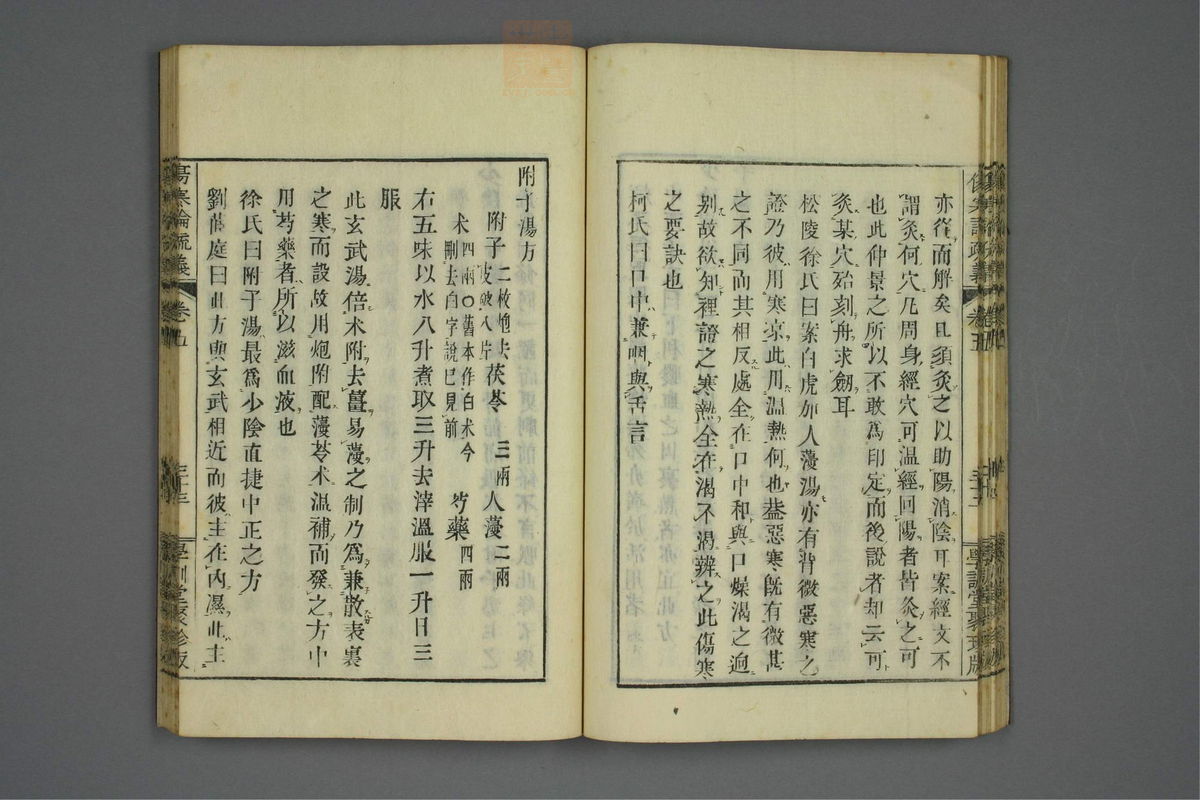 亦從而解矣且須灸之以助陽消陰耳案經文不
謂灸何穴凡周身經穴可温經回陽者皆灸之可
也此仲景之所以不敢爲印定而後說者却云可
灸某穴殆刻舟求劒耳
松陵徐氏曰案白虎加人薓湯亦有背微惡寒之
證乃彼用寒凉此用温熱何也葢惡寒旣有微甚
之不同而其相反處全在口中和與口燥渴之迥
别故欲知裡證之寒熱全在渴不渴辨之此傷寒
之要訣也
柯氏曰口中兼咽與舌言
附子湯方
附子二枚炮去皮破八片 茯苓三兩 人薓二兩
朮四兩○舊本作白朮今刪去白字說已見前 芍藥四兩
右五味以水八升煮取三升去滓溫服一升日三
服
此玄武湯倍朮附去薑易薓之制乃爲兼散表裏
之寒而設故用炮附配薓苓朮温補而發之方中
用芍藥者所以滋血液也
徐氏曰附子湯最爲少陰直捷中正之方
劉茝庭曰此方與玄武相近而彼主在內濕此主
傷寒論疏義
卷五
三十三
學訓堂聚珍版